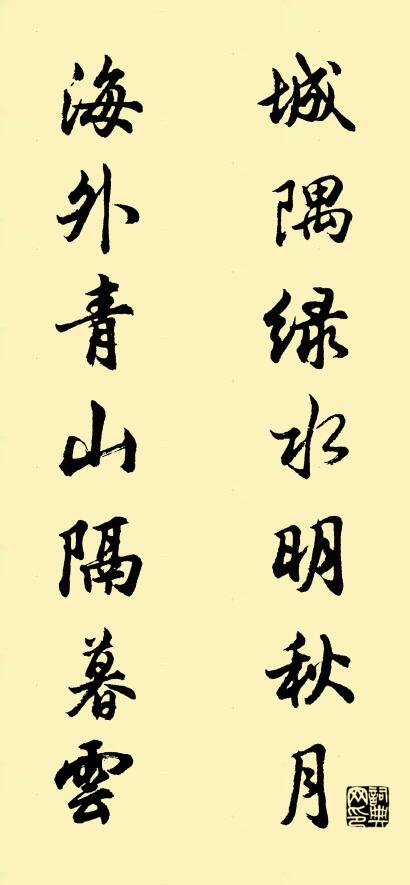 城隅绿水明秋月
海外青山隔暮雲
詞典网印